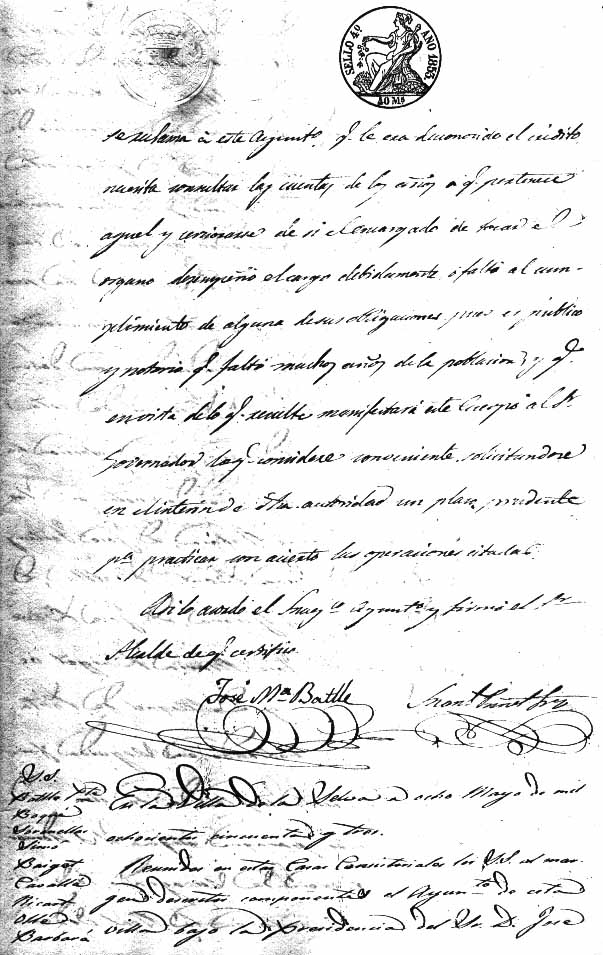 SELLO 4º AÑO 1853.
40 Ms
se reclama á este Ayuntº. q. le era desconocido el crédito
necesita consultar las cuentas de los años a q. pertenece
aquel y cerciorarse de si el encargado de tocar el
organo desempeñó el cargo debidamente ó faltó al cum-
plimiento de alguna de sus obligaciones, pues es publico
y notorio q. faltó muchos años de la poblacion; y q.
en vista de lo q. resulte manifestará este Cuerpo al Sr.
Governador lo q. considere conveniente, solicitandose
en el interin de dha autoridad un plazo prudente
pª practicar con acierto las operaciones citadas.
Asi lo acordó el Magº Ayuntº y firmó el Sr
Alcalde de q. certifico.
José Mª Batlle
S.S.
Batlle Pte
En la Villa de la Selva a ocho Mayo de mil
ochocientos cincuenta y tres.
Simó
Puigt
Reunidos en estas Casas Consistoriales los S.S. al mar-
gen descritos componentes el Ayuntº de esta
Olle
Barbará
villa bajo la presidencia del Sr. D. José